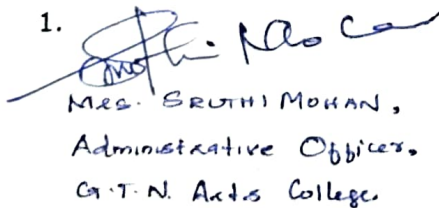 1.
Mrs. SRUTHI MOHAN,
Administrative Officer,
G.T.N. Arts College.